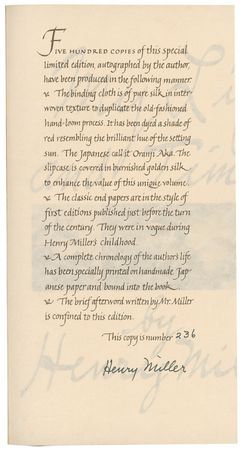 FIVE HUNDRED COPIES of this special
limited edition, autographed by the author,
have been produced in the following manner:
The binding cloth is of pure silk, in inter-
woven texture to duplicate the old-fashioned
hand-loom process. It has been dyed a shade of
red resembling the brilliant hue of the setting
sun. The Japanese call it Oranji Aka. The
slipcase is covered in burnished golden silk
to enhance the value of this unique volume.
The classic end papers are in the style of
first editions published just before the turn
of the century. They were in vogue during
Henry Miller's childhood.
A complete chronology of the author's life
has been specially printed on handmade Jap-
anese paper and bound into the book.
The brief afterword written by Mr. Miller
is confined to this edition.
This copy is number 236
Henry Miller
by
Henry Mil